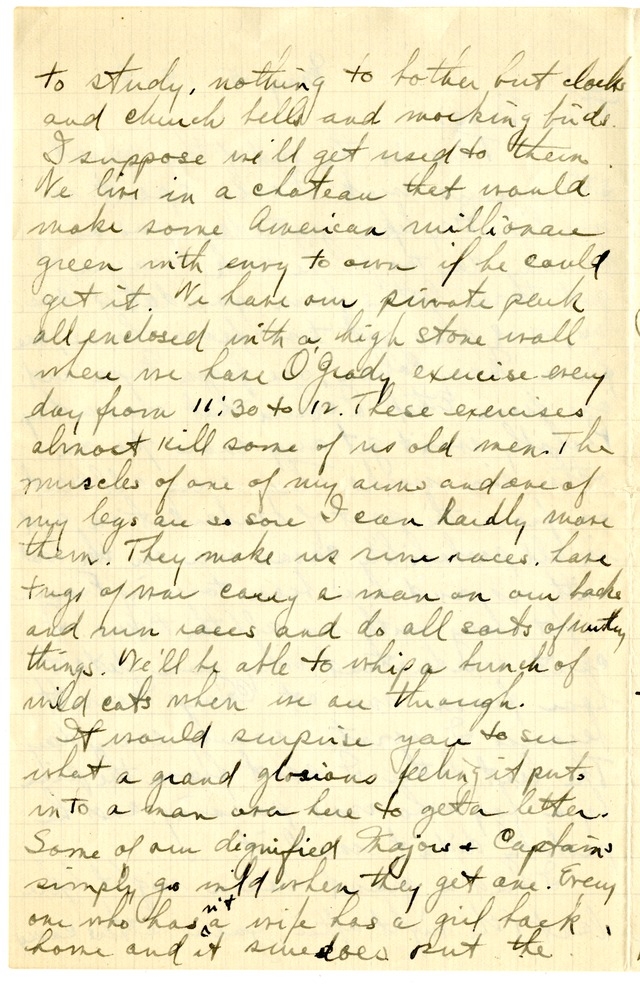 to study, nothing to bother but clocks
and church bells and mocking birds.
I suppose we'll get used to them.
We live in a chateau that would
make some American millionare
green with envy to own if he could
get it. We have our private park
all enclosed with a high stone wall
where we have O'Grady exercise every
day from 11:30 to 12. These exercises
almost kill some of us old men. The
muscles of one of my arms and one of
my legs are so sore I can hardly move
them. They make us run races, have
tugs of war carry a man on our backs
and run races and do all sorts of
things. We'll be able to whip a bunch of
wild cats when we are through.
It would surprise you to see
what a grand glorious feeling it puts
into a man over here to get a letter.
Some of our dignified Majors + Captains
simply go wild when they get one. Every
one who hasn't a wife has a girl back
home and it sure does put the